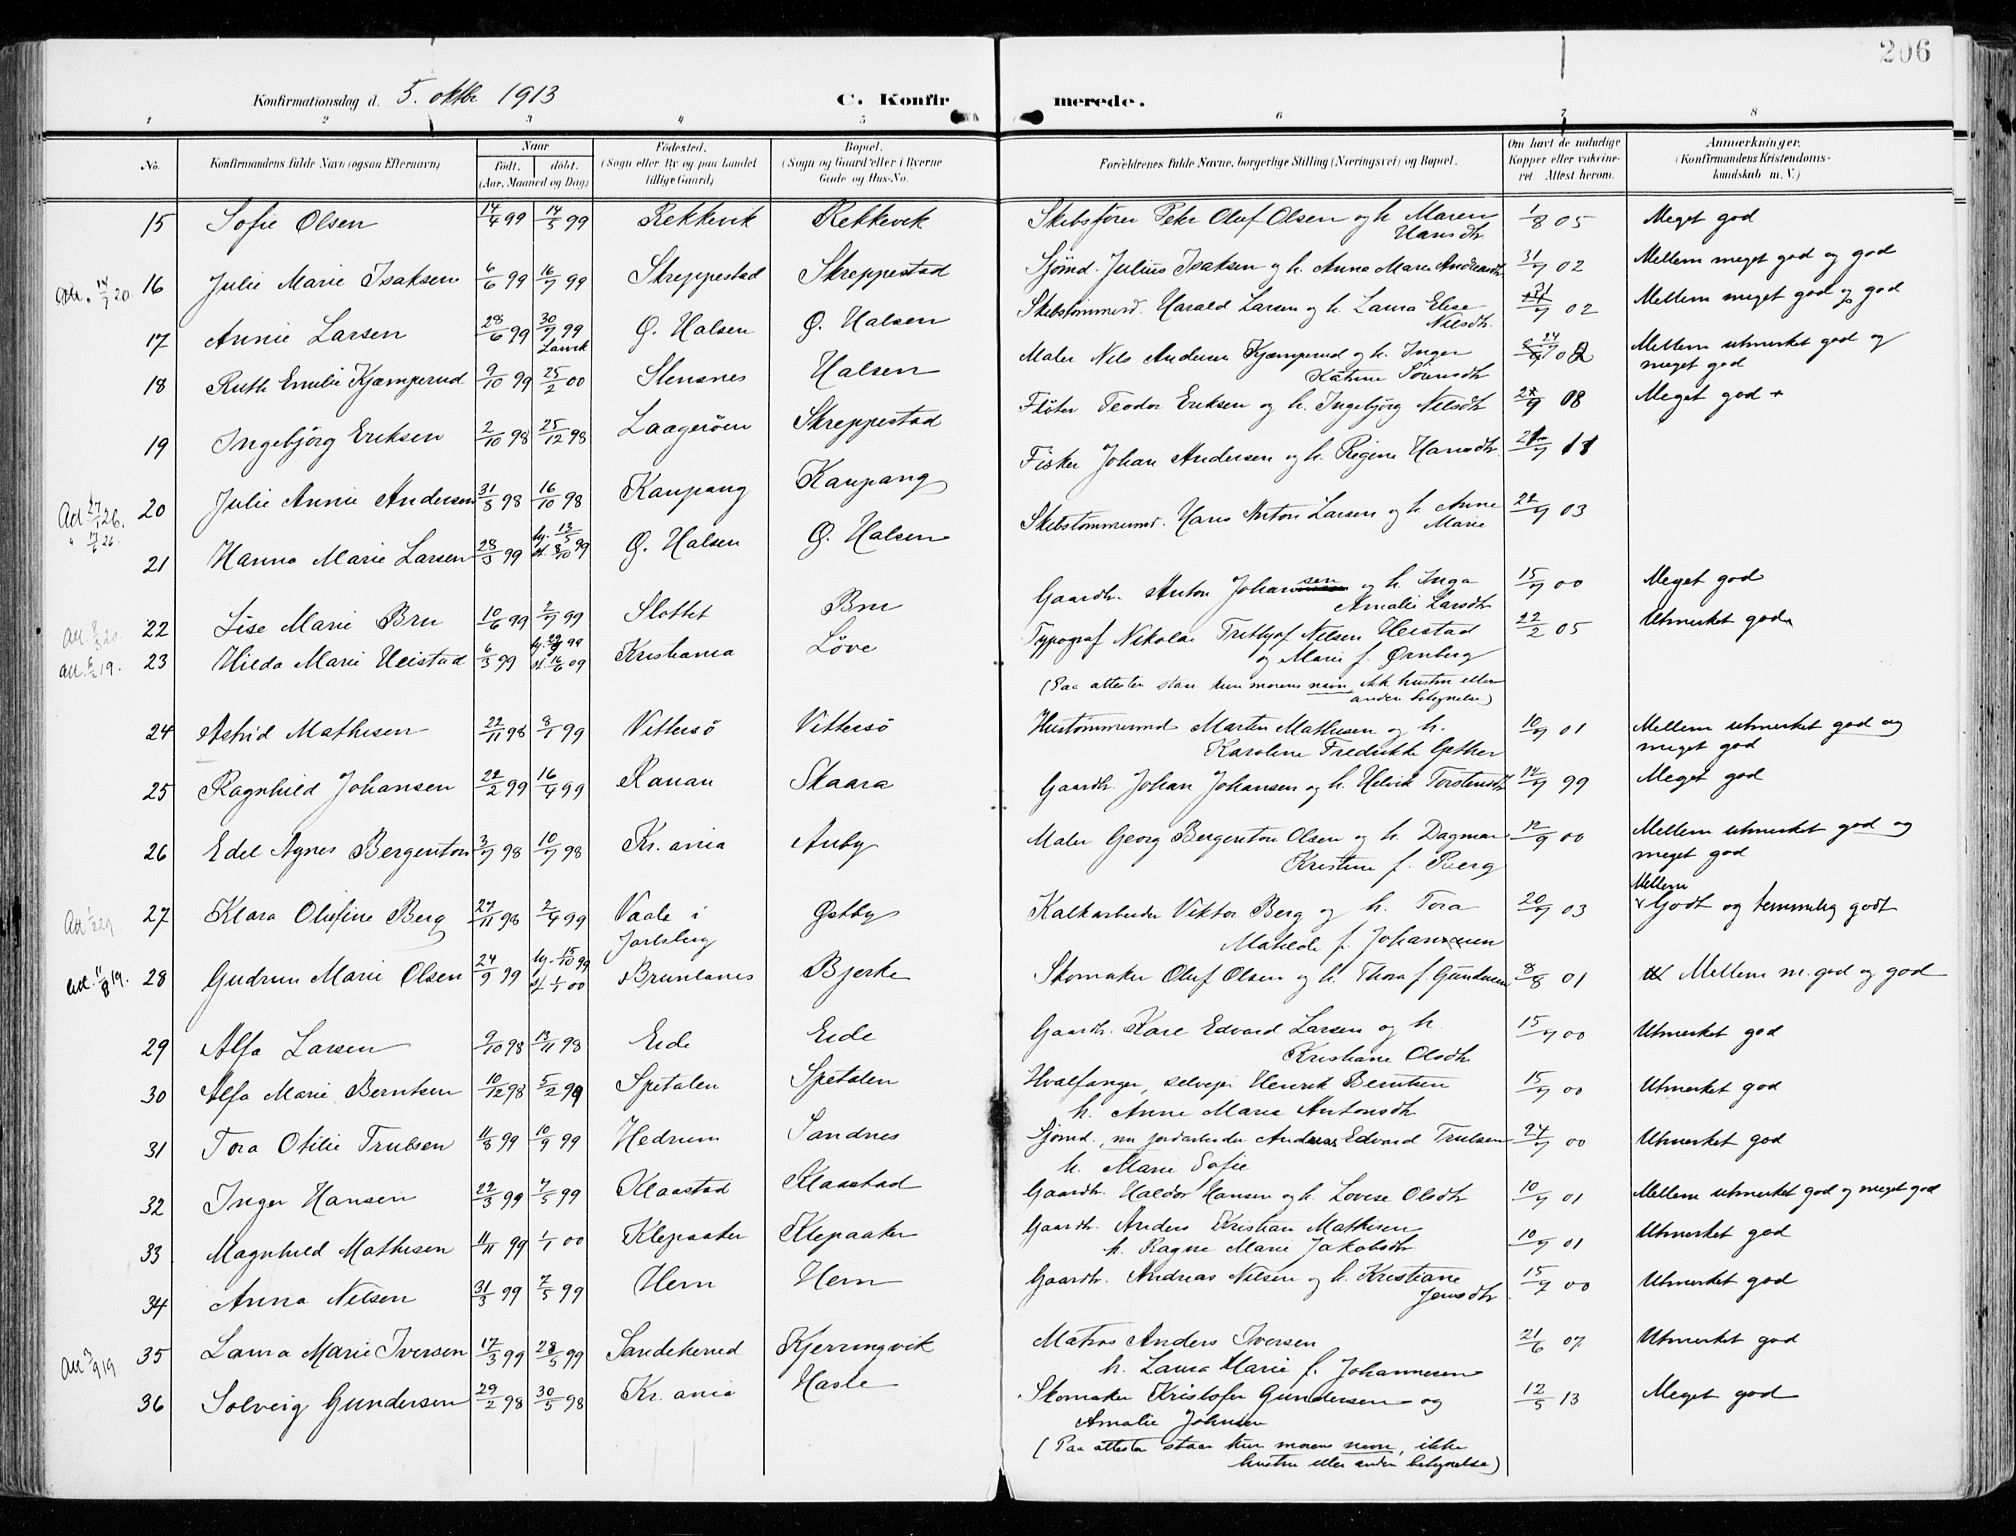 206
Konfirmationsdag d. 5. oktbr 1913 C. Konfirmerede.
1 2 3 4 5 6 7 8
No. Konfirmandens fulde Navn (ogsaa Efternavn) Naar født. døbt. (Aar, Maaned og Dag) Fødested. (Sogn eller By og paa Landet tillige Gaard) Bopæl. (Sogn og Gaard eller i Byerne Gade og Hus-No. Forældrenes fulde Navne, borgerlige Stilling (Næringsvei) og Bopæl. Om havt de naturlige Kopper eller vakcineret. Attest herom. Anmerkninger. (Konfirmandens Kristendomskundskab m. V.)
15 Sofie Olsen 14/4 99 14/5 99 Rekkevik Rekkevik Skibsfører Peder Oluf Olsen og h. Maren Hansdtr. 1/8 05 Meget god
Att. 14/7 20. 16 Julie Marie Isaksen 6/6 99 16/7 99 Skreppestad Skreppestad Sjømd. Julius Isaksen og h. Anna Marie Andersdtr 31/7 02 Mellem meget god og god
17 Annie Larsen 28/6 99 30/7 99 Larvik Ø. Halsen Ø. Halsen Skibstømmerd. Harald Larsen og h. Laura Elise Nilsdtr. 31/7 02 Mellem meget god og god
18 Ruth Emilie Kjæmperud 9/10 99 25/2 00 Stensnes Halsen Maler Nils Andreas Kjæmperud og h. Inger Katrine Sørensdtr 02 Mellem utmerket god og meget god
19 Ingebjørg Eriksen 2/10 98 25/12 98 Laagerøen Skreppestad Fløter Teodor Eriksen og h. Ingebjørg Nilsdtr 27/9 08 Meget god +
Att 27/1 26. 20 Julie Annie Andersen 31/8 98 16/10 98 Kaupang Kaupang Fisker Johan Andersen og h. Regine Hansdtr. 11
" 17/6 26. 21 Hanna Marie Larsen 28/3 99 hj. 13/5 st. 8/10 99 Ø. Halsen Ø. Halsen Skibstømmermd. Hans Anton Larsen og h. Anne Marie 22/7 03
22 Lise Marie Bru 10/6 99 2/7 99 Slottet Bru Gaardbr. Anton Johansen og h. Inga Amalie Larsdtr 15/7 00 Meget god
Att. 6/2 19. 23 Hilda Marie Heistad 6/3 99 st. 16/6 09 Kristiania Løve Typograf Nikolai Fritjof Nilsen Heistad og Marie f. Ørnberg 22/2 05 Utmerket god
(Paa attesten staar kun morens navn, ikke hustru eller anden betegnelse)
24 Astrid Mathisen 22/11 98 8/1 99 Vittersø Vittersø Hustømmermd Martin Mathisen og h. Karoline Fredrikke Gether 10/7 01 Mellem utmerket god og meget god
25 Ragnhild Johansen 22/2 99 16/4 99 Ranan Skaara Gaardbr. Johan Johansen og h. Helvik Torstensdtr 12/7 99 Meget god
26 Edel Agnes Bergenton 3/7 98 10/7 98 Kr.ania Auby Maler Georg Bergenton Olsen og h. Dagmar Kristine f. Berg 12/9 00 Mellem utmerket god og meget god
27 Klara Olufine Berg 27/11 98 2/4 99 Vaale i Jarlsberg Østby Kalkarbeider Viktor Berg og h. Tora Matilde f. Johannesen 20/7 03 Mellem Godt og temmelig godt
Att. 11/8 19. 28 Gudrun Marie Olsen 24/9 99 hj. 15/10 99 st. 1/1 00 Brunlanes Bjerke Skomaker Oluf Olsen og h. Thora f. Gundersen 8/8 01 Mellem m. god og god
29 Alfa Larsen 9/10 98 13/11 98 Eide Eide Gaardbr. Kare Edvard Larsen og h. Kristiane Olsdtr. 15/7 00 Utmerket god
30 Alfa Marie Berntsen 10/12 98 5/2 99 Spetalen Spetalen Hvalfanger, selveier Henrik Berntsen h. Anne Marie Antonsdtr 15/7 00 Utmerket god
31 Tora Otilie Trulsen 11/8 99 10/9 99 Hedrum Sandnes Sjømd., nu jordarbeider Andreas Edvard Trulsen h. Marie Sofie 24/7 00 Utmerket god
32 Inger Hansen 22/3 99 7/5 99 Klaastad Klaastad Gaardbr. Haldor Hansen og h. Lovise Olsdtr 10/7 01 Mellem utmerket god og meget god
33 Magnhild Mathisen 11/11 99 1/1 00 Klepaaker Klepaaker Gaardbr. Anders Kristian Mathisen h. Ragne Marie Jakobsdtr 10/7 01 Utmerket god
34 Anna Nilsen 31/3 99 7/5 99 Hem Hem Gaardbr. Andreas Nilsen og h. Kristiane Jensdtr. 15/7 00 Utmerket god
Att 3/9 19 35 Laura Marie Iversen 17/3 99 28/5 99 Sandeherred Kjerringvik Matros Anders Iversen h. Laura Marie f. Johannesen 21/6 07 Utmerket god
36 Solveig Gundersen 29/2 98 30/5 98 Kr.ania Hasle Skomaker Kristofer Gundersen og Amalie Johnsen 12/5 13 Meget god
(Paa attesten staar kun morens navn, ikke hustru eller anden betegnelse)